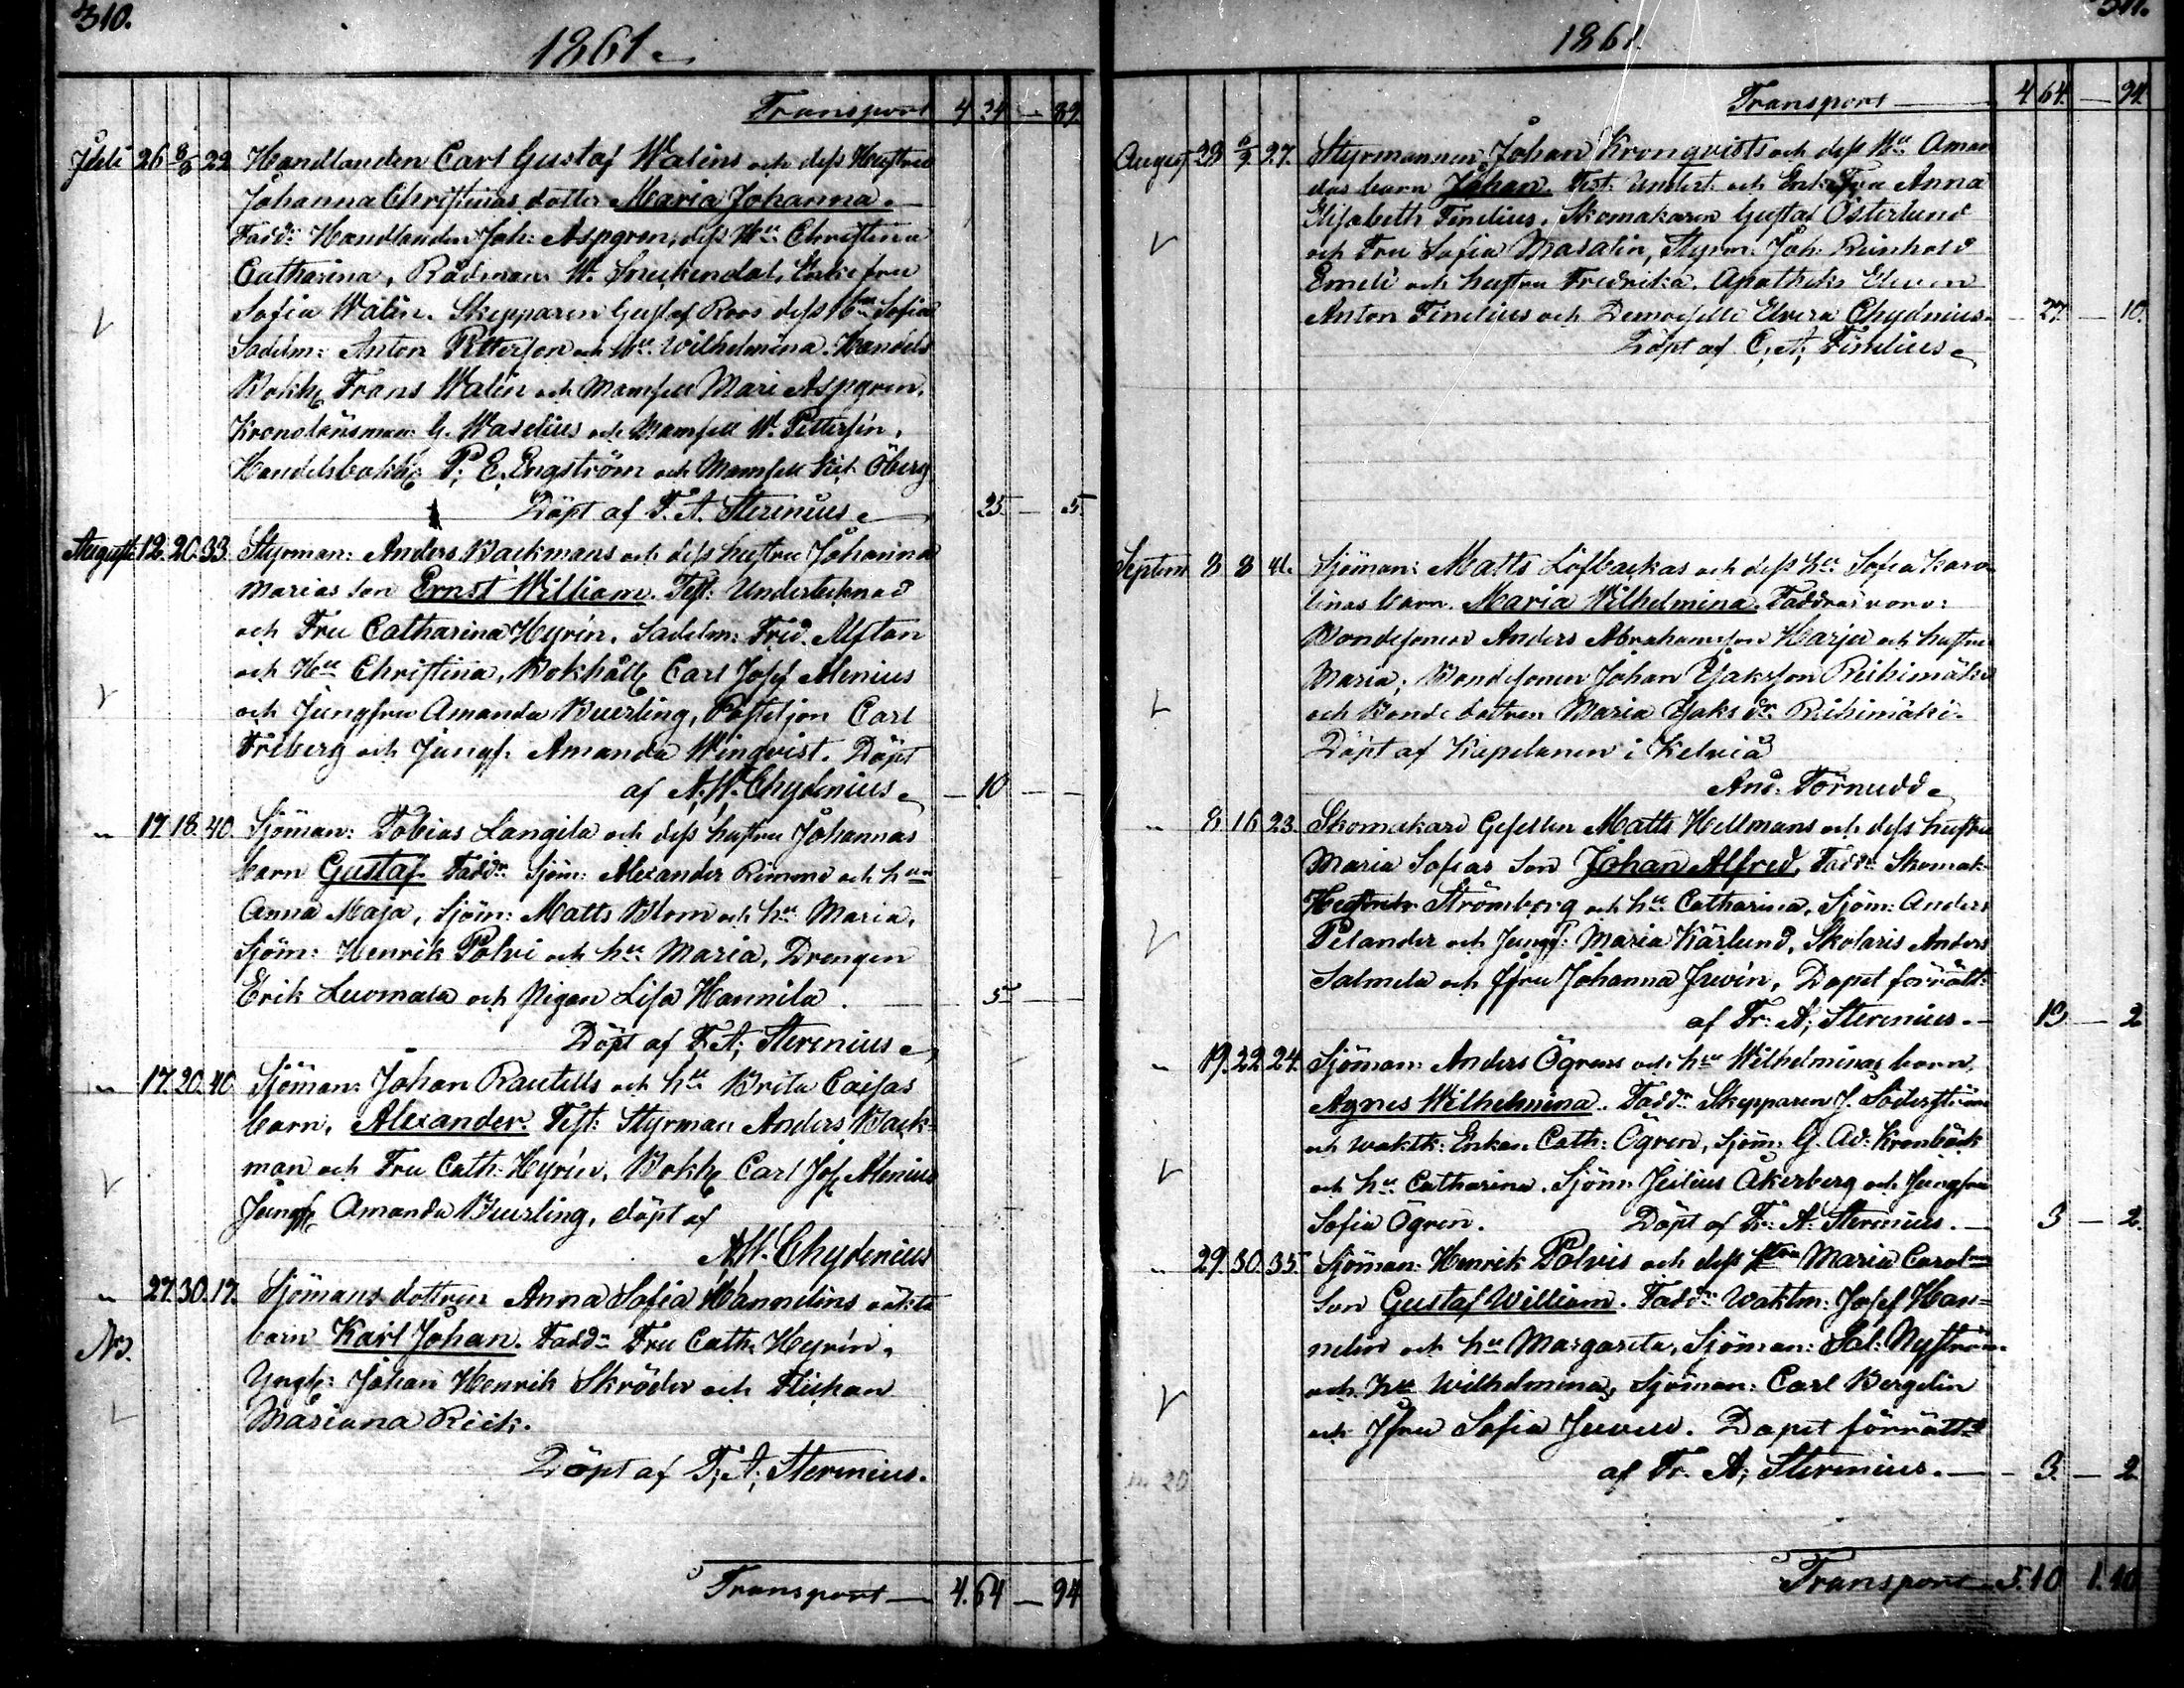 310.
1861
Transport 4 34 — 89
Juli 26 8/8 29 Handlanden Carl Gustaf Walins och dess Hustru
Johanna Christinas dotter Maria Johanna.
Fadd: Handlanden Joh: Aspgren, dess Hu: Christina
Catharina, Rådman W. Snickendal, Enkefru
Sofia Walin. Skepparen Gustaf Roos dess Hu Sofia
Sadelm: Anton Petterson och Hu: Wilhelmina. Handels
Bokh Frans Walin och Mamsell Mari Aspgren,
Kronolänsman G. Waselius och Mamsell W. Petterssin,
Handelsbokh P. E. Engström och Mamsell Öberg
Döpt af F. A. Sterenius 25 — 5
August 12. 20. 33. Styrman: Anders Backmans och dess hustru Johanna
Marias son Ernst William. Test: Undertecknad
och Fru Catharina Hyrén, Sadelm: Fred. Alftan
och Hu Christina, Bokhåll Carl Josef Alenius
och Jungfru Amanda Buerling, Postiljon Carl
Friberg och Jungf. Amanda Winqvist. Döpt
af A. W. Chydenius — 10 — —
" 17. 18. 40. Sjöman: Tobias Langila och dess hustru Johannas
barn Gustaf. Fadd: Sjöm: Alexander Rimmi och hu
Anna Maja, Sjöm: Matts Blom och hu: Maria,
Sjöm: Henrik Polvi och hu: Maria, Drengen
Erik Luomala och Pigan Lisa Hannila. — 5 — —
Döpt af F. A. Sterenius
" 17. 20. 40. Sjöman: Johan Rautells och hu Brita Caisas
barn, Alexander. Test: Styrman Anders Back-
man och Fru Cath: Hyrén, Bokh Carl Jos Alenius
Jungf Amanda Buerling, döpt af
A. W. Chydenius
" 27. 30. 17. Sjömans dottren Anna Sofia Hannelins oäkta
No. barn Karl Johan. Fadd: Fru Cath. Heyrén,
Yngl: Johan Henrik Skröder och Flickan
Mariana Riik.
Döpt af F. A. Sterenius.
Transport 4.64 — 94
311.
1861.
Transport 4 64. — 94.
August 29 6/9 27. Styrmannen Johan Kronqvists och dess Hu: Aman
das barn Johan. Test: Undert. och Enkefru Anna
Elisabeth Finelius, Skomakaren Gustaf Österlund
och Fru Sofia Masalin, Styrm: Joh: Reinhold
Emeli och hustru Fredrika. Apotheks Eleven
Anton Finelius och Demoiselle Elvira Chydenius. — 27. — 10.
Döpt af C. A. Finelius
Septem 8 8 41. Sjöman: Matts Löfbackas och dess hu: Sofia Karo
linas barn. Maria Wilhelmina. Faddrar voro:
Bondesonen Anders Abrahamsson Harju och hustru
Maria; Bondesonen Johan Isaksson Riihimäki
och Bondedottren Maria Isaks dr. Riihimäki.
Döpt af Kapelanen i Kelviå
And. Törnudd
" 8 16 23. Skomakare Gesellen Matts Hellmans och dess hustru
Maria Sofias son Johan Alfred, Fadd: Skomak:
Strömborg och hu: Catharina, Sjöm: Anders
Pelander och Jungf: Maria Kärlund, Skolaris Anders
Salmela och Jfru Johanna Juvén, Dopet förrätt:
af Fr: A. Sterenius. — 13 — 2
" 19. 22 24. Sjöman: Anders Ögrens och hu Wilhelminas barn,
Agnes Wilhelmina. Fadd: Skepparen J. Söderström
och waktk: Enkan Cath: Ögren, Sjöm: G. Ad: Kronbäck
och hu: Catharina. Sjöm: Julius Åkerberg och Jungfru
Sofia Ögren. Döpt af Fr: A. Sterenius. — 3 — 2.
" 29. 30. 35. Sjöman: Henrik Polvis och dess Maria Carol
son Gustaf William. Fadd: Waktm: Josef Han=
nelin och hu Margareta, Sjöman: Sal: Nyström
och hu Wilhelmina, Sjöman: Carl Bergelin
och Jfru Sofia Juven. Dopet förrätt:
af Fr. A. Sterenius. — 3. — 2
Transport 5.10 1.10